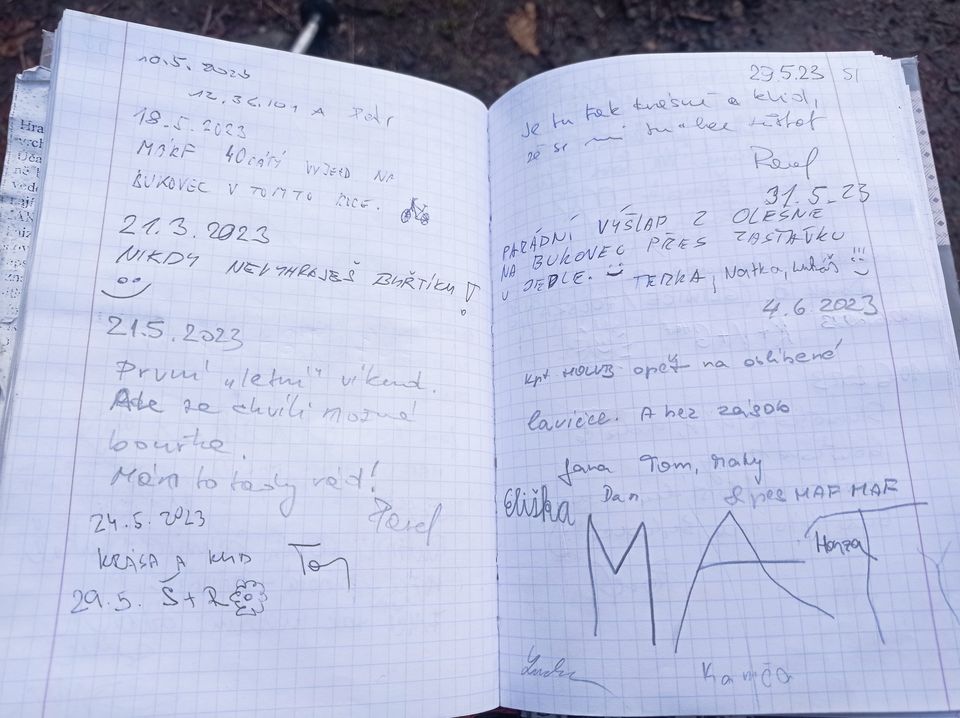 10.5. 2023
A Petr
18.5. 2023
40CÁTÝ VÝJEZD NA
BUKOVEC V TOMTO ROCE.
21.3.2023
NIKDY NEVYHRAJEŠ BUŘTÍKU!
21.5.2023
První „letní" víkend.
Ale za chvíli možná
bouřka.
Mám to tady rád!
Pavel
24.5.2023
KRÁSA A KLID Tom
29.5. Š+R
29.5.23
Je tu tak krásně a klid,
že se mi tu chce zůstat
Pavel
31.5.23
PARÁDNÍ VÝŠLAP Z OLEŠNÉ
NA BUKOVEC PŘES ZASTÁVKU
U JEDLE. TERKA, Natka, Lukáš !!!
4.6.2023
Kpt HOLUB opět na oblíbené
lavičce. A bez zásob
Jana Tom,
Eliška Dan & pes MAF MAF
MAT
Honza
Kamča